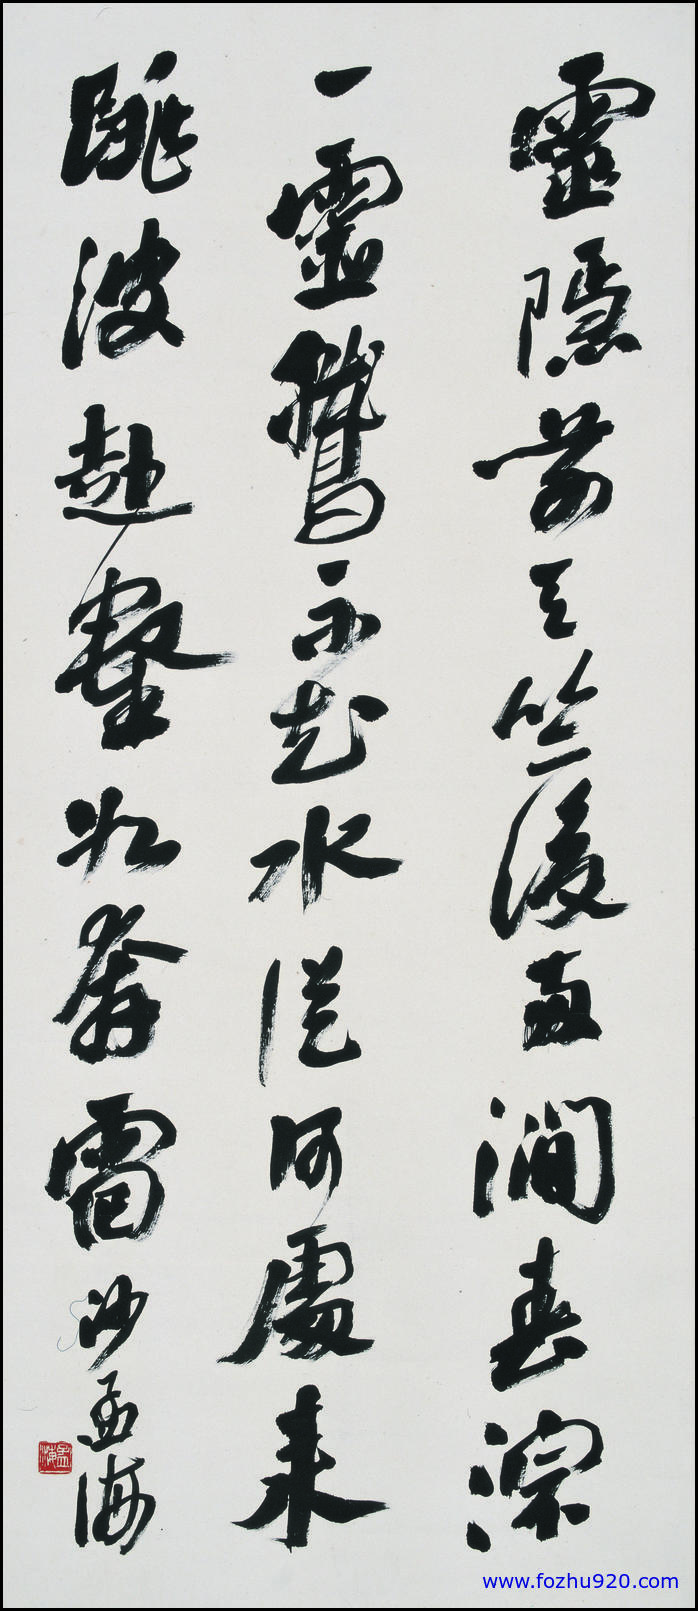 靈隱前天竺後兩澗春淙
一靈鷲不知水從何處來
跳波赴壑如奔雷沙孟海
孟海
www.fozhu920.com